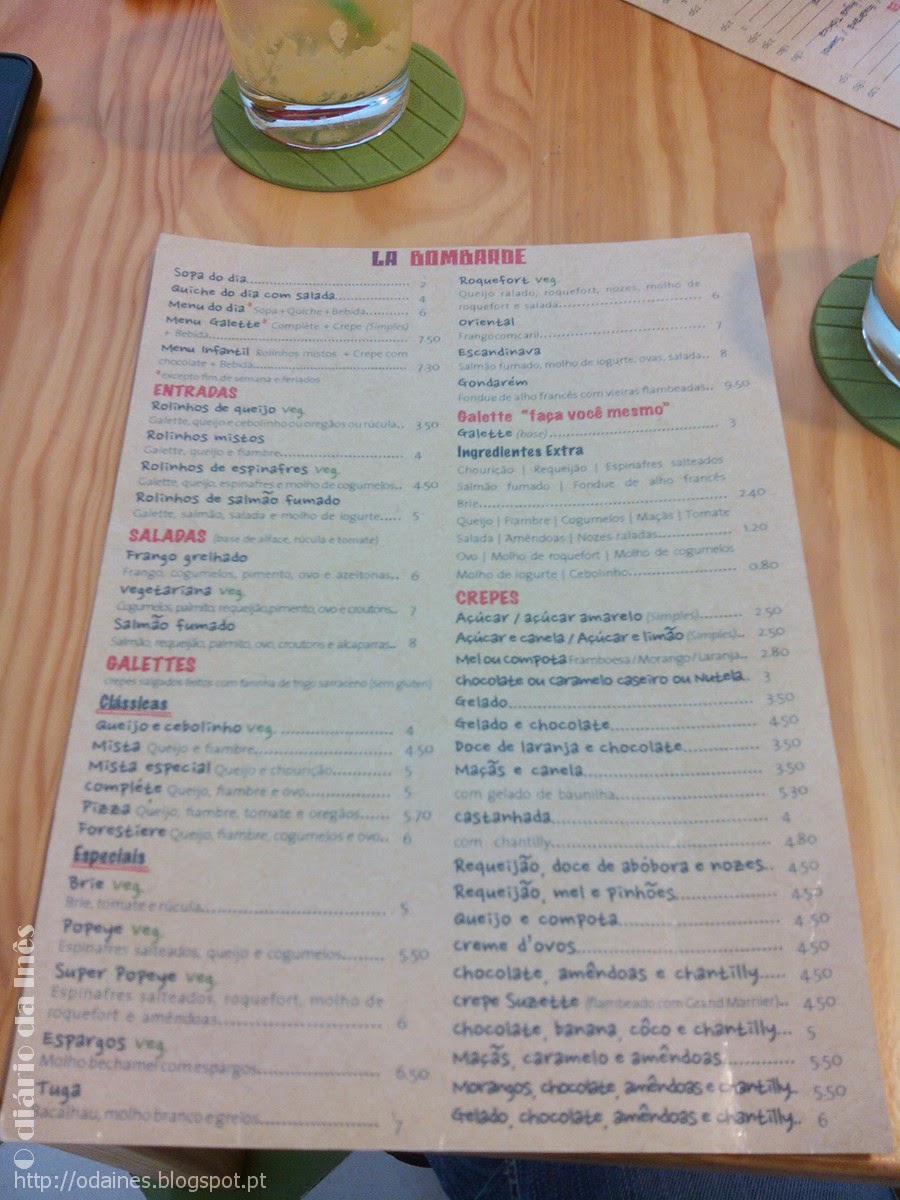 LA BOMBARDE
Sopa do dia........ 2
Quiche do dia com salada........ 4
Menu do dia* Sopa + Quiche + Bebida........ 6
Menu Galette* Compléte + Crepe (Simples)
+ Bebida........ 7.50
Menu Infantil Rolinhos mistos + Crepe com
chocolate + Bebida........ 7.30
*excepto fim de semana e feriados
ENTRADAS
Rolinhos de queijo veg.
Galette, queijo e cebolinho ou oregãos ou rúcula.. 3.50
Rolinhos mistos
Galette, queijo e fiambre........ 4
Rolinhos de espinafres veg.
Galette, queijo, espinafres e molho de cogumelos.. 4.50
Rolinhos de salmão fumado
Galette, salmão, salada e molho de iogurte..... 5
SALADAS (base de alface, rúcula e tomate)
Frango grelhado
Frango, cogumelos, pimento, ovo e azeitonas.. 6
Vegetariana veg.
Cogumelos, palmito, requeijão, pimento, ovo e croutons.. 7
Salmão fumado
Salmão, requeijão, palmito, ovo, croutons e alcaparras.. 8
GALETTES
crepes salgados feitos com farinha de trigo sarraceno (sem glúten)
Clássicas
Queijo e cebolinho veg. ........ 4
Mista Queijo e fiambre........ 4.50
Mista especial Queijo e chourição........ 5
Compléte Queijo, fiambre e ovo........ 5
Pizza Queijo, fiambre, tomate e oregãos...... 5.70
Forestiere Queijo, fiambre, cogumelos e ovo.. 6
Especiais
Brie veg.
Brie, tomate e rúcula........ 5
Popeye veg.
Espinafres salteados, queijo e cogumelos........ 5.50
Super Popeye veg.
Espinafres salteados, roquefort, molho de
roquefort e amêndoas........ 6
Espargos veg.
Molho bechamel com espargos........ 6.50
Tuga
Bacalhau, molho branco e grelos........ 7
Roquefort veg.
Queijo ralado, roquefort, nozes, molho de
roquefort e salada........ 6
Oriental
Frango com caril........ 7
Escandinava
Salmão fumado, molho de iogurte, ovas, salada.. 8
Gondarém
Fondue de alho francês com vieiras flambeadas.. 9.50
Galette "faça você mesmo"
Galette (base)........ 3
Ingredientes Extra
Chourição | Requeijão | Espinafres salteados
Salmão fumado | Fondue de alho francês
Brie........ 2.40
Queijo | Fiambre | Cogumelos | Maçãs | Tomate
Salada | Amêndoas | Nozes raladas........ 1.20
Ovo | Molho de roquefort | Molho de cogumelos
Molho de iogurte | Cebolinho........ 0.80
CREPES
Açúcar / açúcar amarelo (Simples)........ 2.50
Açúcar e canela / Açúcar e limão (Simples).. 2.50
Mel ou compota Framboesa / Morango / Laranja.. 2.80
Chocolate ou caramelo caseiro ou Nutela. 3
Gelado........ 3.50
Gelado e chocolate........ 4.50
Doce de laranja e chocolate........ 3.50
Maçãs e canela........ 3.50
com gelado de baunilha........ 5.30
Castanhada........ 4
com chantilly........ 4.80
Requeijão, doce de abóbora e nozes.. 4.50
Requeijão, mel e pinhões........ 4.50
Queijo e compota........ 4.50
Creme d'ovos........ 4.50
Chocolate, amêndoas e chantilly..... 4.50
Crepe Suzette (flambeado com Grand Marnier).. 4.50
Chocolate, banana, côco e chantilly... 5
Maçãs, caramelo e amêndoas........ 5.50
Morangos, chocolate, amêndoas e chantilly.. 5.50
Gelado, chocolate, amêndoas e chantilly.. 6
O diário da Inês
http://odaines.blogspot.pt